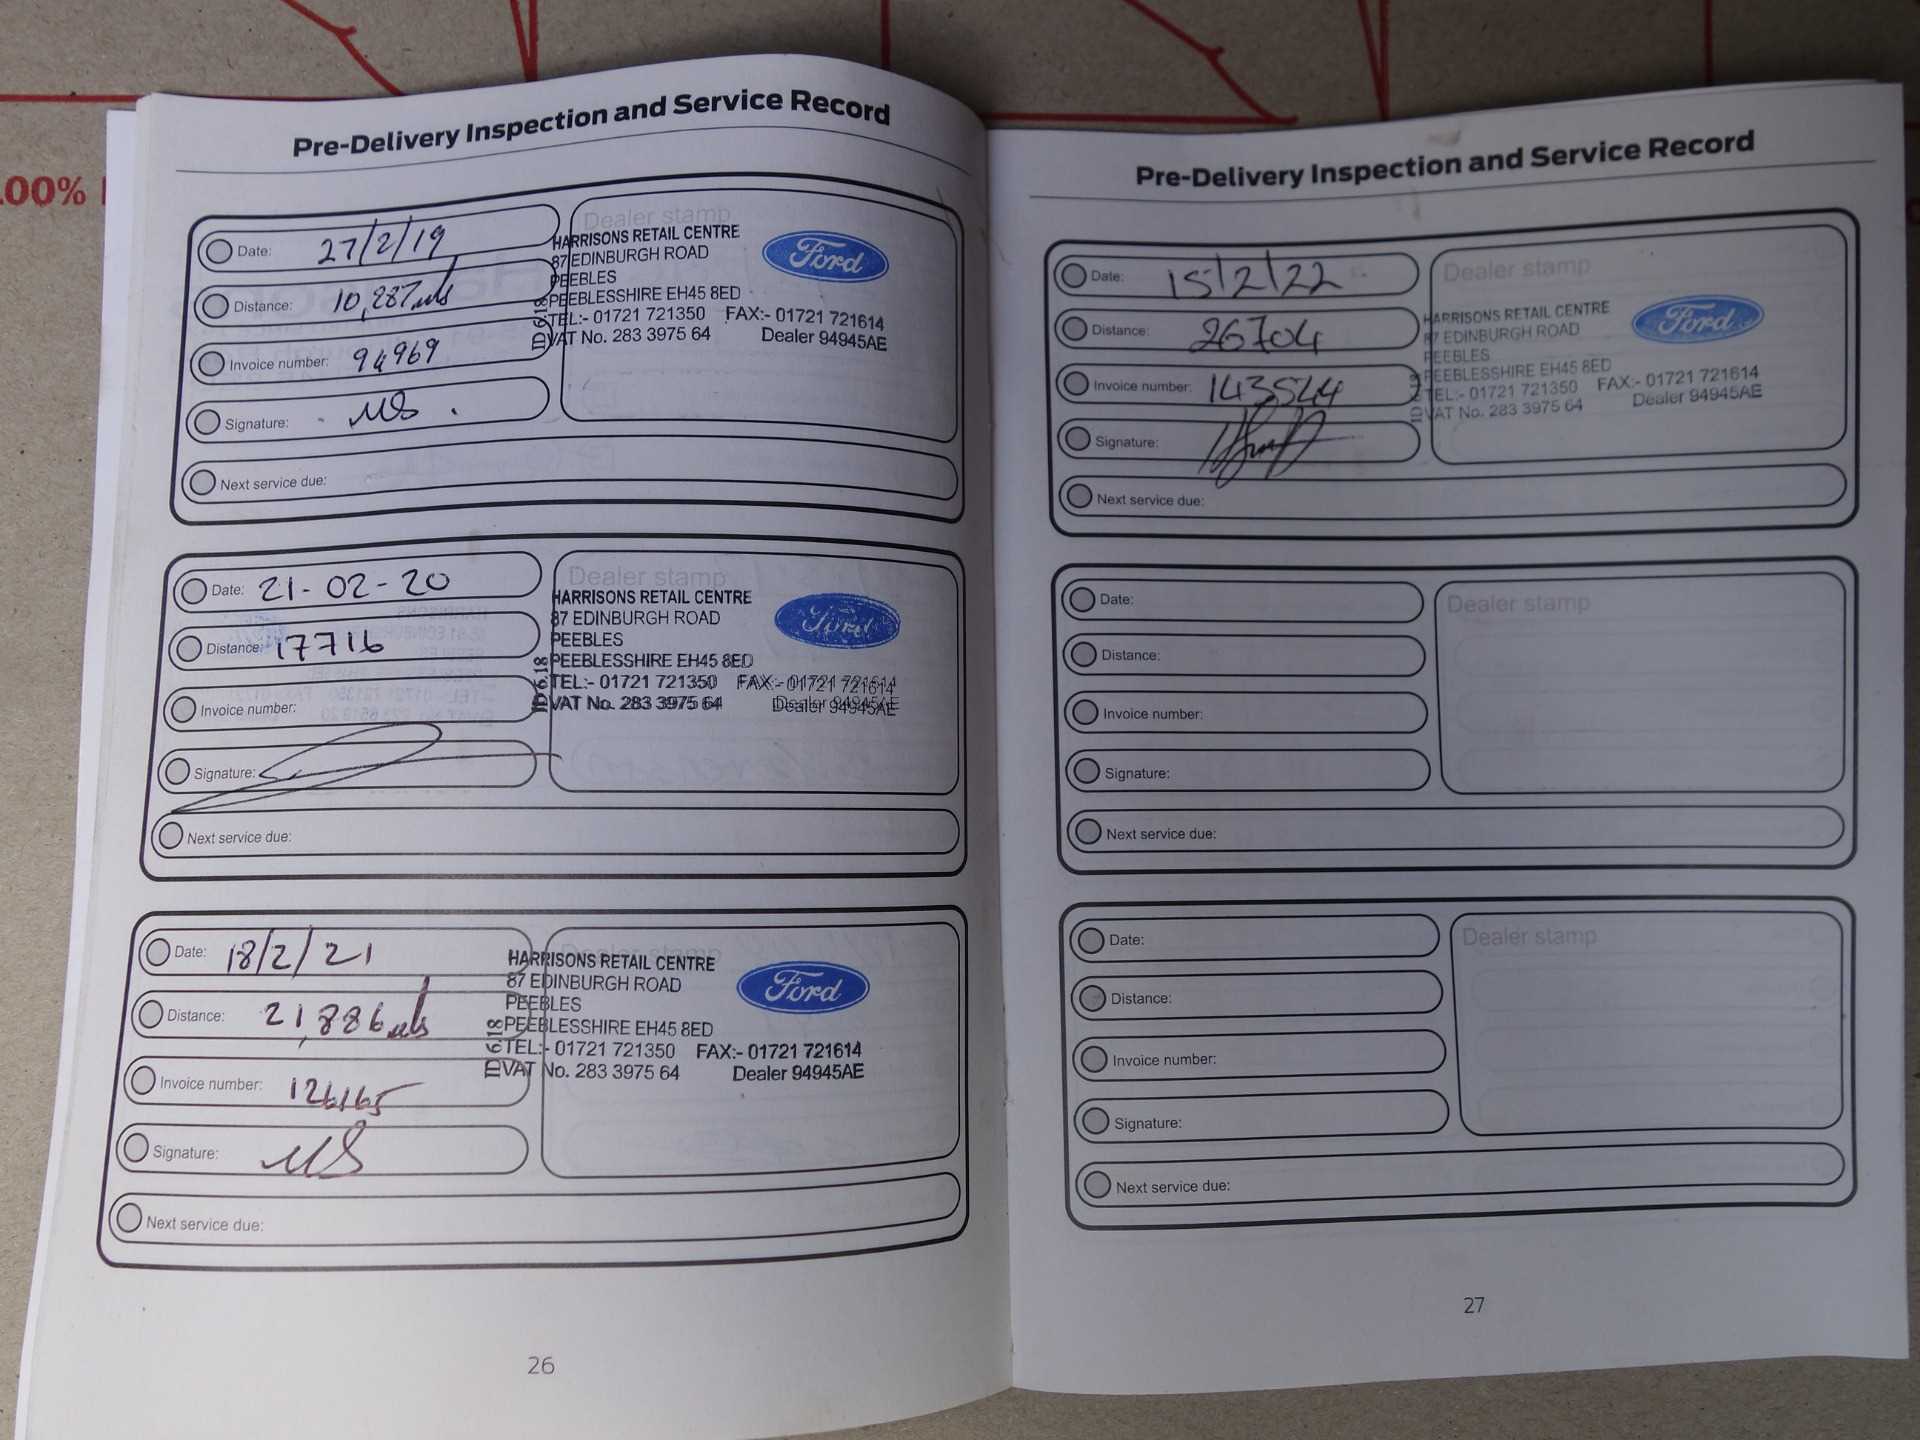 100%
Pre-Delivery Inspection and Service Record
Date: 27/2/19
Distance: 10,287 mls
Invoice number: 94969
Signature: MS
Next service due:
Dealer stamp
HARRISONS RETAIL CENTRE
87 EDINBURGH ROAD
PEEBLES
PEEBLESSHIRE EH45 8ED
TEL:- 01721 721350 FAX:- 01721 721614
VAT No. 283 3975 64 Dealer 94945AE
ID 6.18
Ford
Date: 21-02-20
Distance: 17716
Invoice number:
Signature:
Next service due:
Dealer stamp
HARRISONS RETAIL CENTRE
87 EDINBURGH ROAD
PEEBLES
PEEBLESSHIRE EH45 8ED
TEL:- 01721 721350 FAX:- 01721 721614
VAT No. 283 3975 64 Dealer 94945AE
ID 6.18
Ford
Date: 18/2/21
Distance: 21,886 mls
Invoice number: 126165
Signature: MS
Next service due:
Dealer stamp
HARRISONS RETAIL CENTRE
87 EDINBURGH ROAD
PEEBLES
PEEBLESSHIRE EH45 8ED
TEL:- 01721 721350 FAX:- 01721 721614
VAT No. 283 3975 64 Dealer 94945AE
ID 6.18
Ford
26
Pre-Delivery Inspection and Service Record
Date: 15/2/22
Distance: 26704
Invoice number: 143544
Signature:
Next service due:
Dealer stamp
HARRISONS RETAIL CENTRE
87 EDINBURGH ROAD
PEEBLES
PEEBLESSHIRE EH45 8ED
TEL:- 01721 721350 FAX:- 01721 721614
VAT No. 283 3975 64 Dealer 94945AE
ID 6.18
Ford
Date:
Distance:
Invoice number:
Signature:
Next service due:
Dealer stamp
Date:
Distance:
Invoice number:
Signature:
Next service due:
Dealer stamp
27